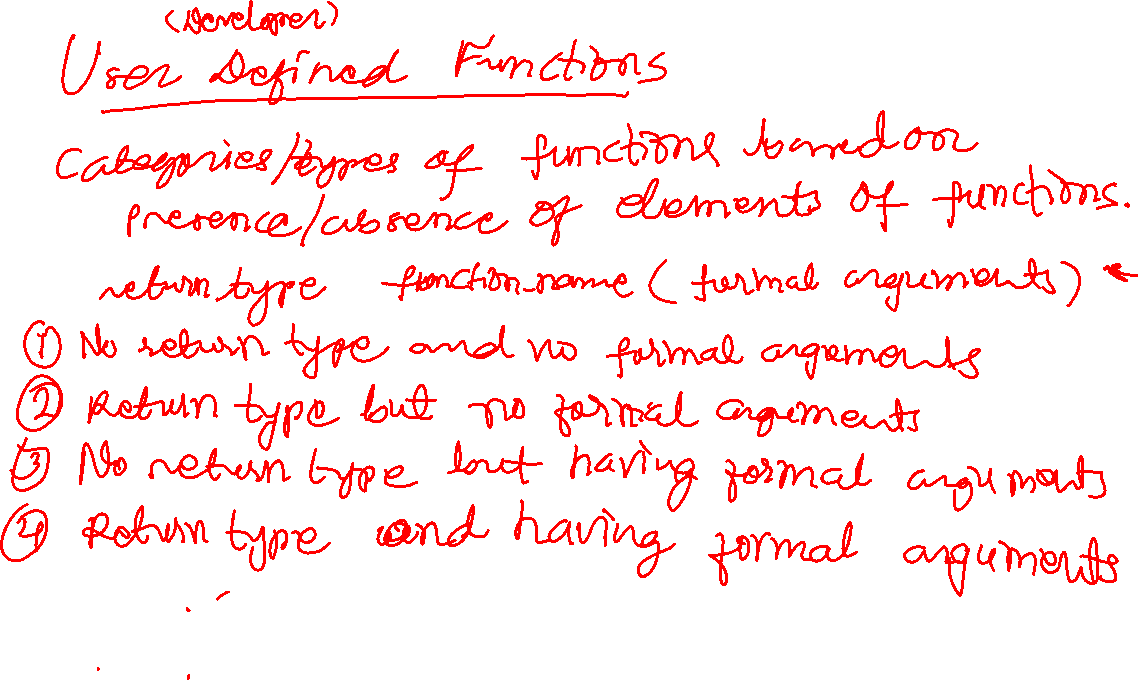 (Developer)
User Defined Functions
Categories/types of functions based on
presence/absence of elements of functions.
return type function-name ( formal arguments )
① No return type and no formal arguments
② Return type but no formal arguments
③ No return type but having formal arguments
④ Return type and having formal arguments